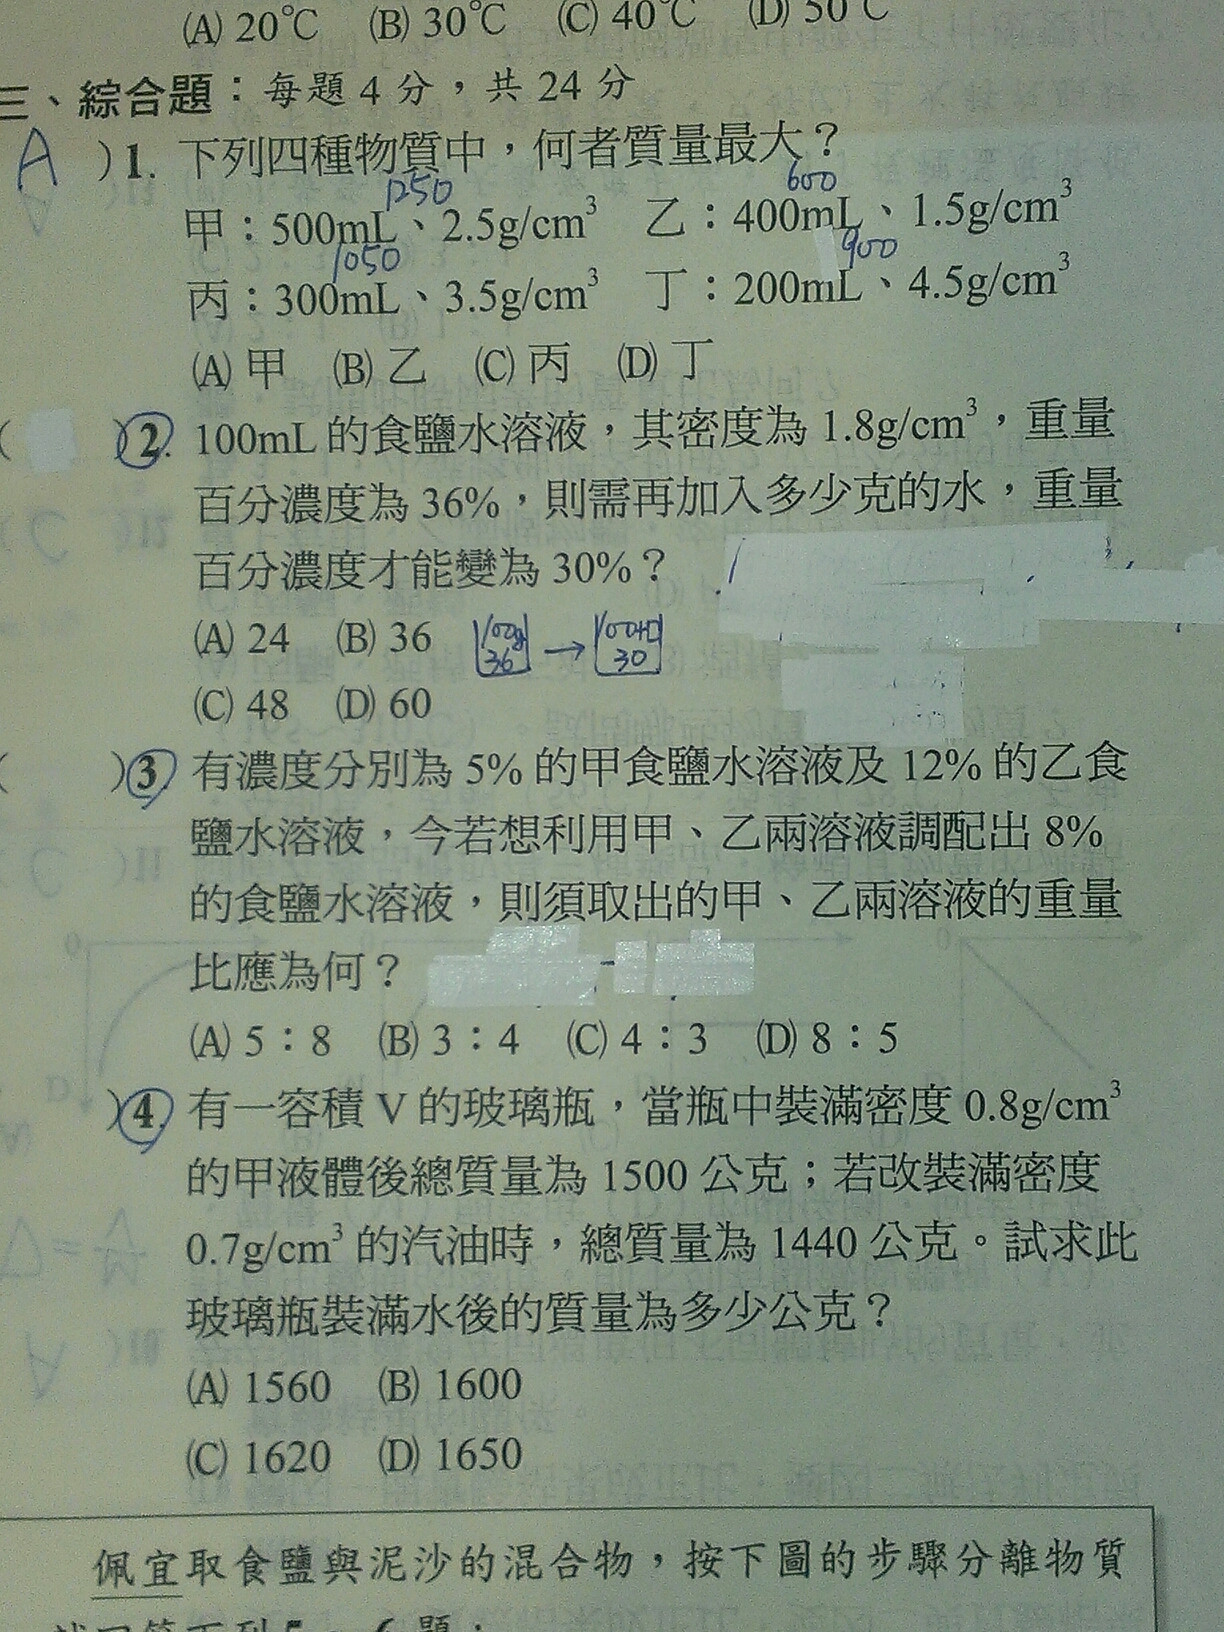 (A) 20℃ (B) 30℃ (C) 40℃ (D) 50℃
三、綜合題：每題 4 分，共 24 分
A )1. 下列四種物質中，何者質量最大？
1250 600
甲：500mL、2.5g/cm³ 乙：400mL、1.5g/cm³
1050 900
丙：300mL、3.5g/cm³ 丁：200mL、4.5g/cm³
(A) 甲 (B) 乙 (C) 丙 (D) 丁
( )2. 100mL 的食鹽水溶液，其密度為 1.8g/cm³，重量
百分濃度為 36%，則需再加入多少克的水，重量
百分濃度才能變為 30%？
(A) 24 (B) 36 100g 36 → 30
(C) 48 (D) 60
( )3. 有濃度分別為 5% 的甲食鹽水溶液及 12% 的乙食
鹽水溶液，今若想利用甲、乙兩溶液調配出 8%
的食鹽水溶液，則須取出的甲、乙兩溶液的重量
比應為何？
(A) 5：8 (B) 3：4 (C) 4：3 (D) 8：5
)4. 有一容積 V 的玻璃瓶，當瓶中裝滿密度 0.8g/cm³
的甲液體後總質量為 1500 公克；若改裝滿密度
0.7g/cm³ 的汽油時，總質量為 1440 公克。試求此
玻璃瓶裝滿水後的質量為多少公克？
(A) 1560 (B) 1600
(C) 1620 (D) 1650
佩宜取食鹽與泥沙的混合物，按下圖的步驟分離物質